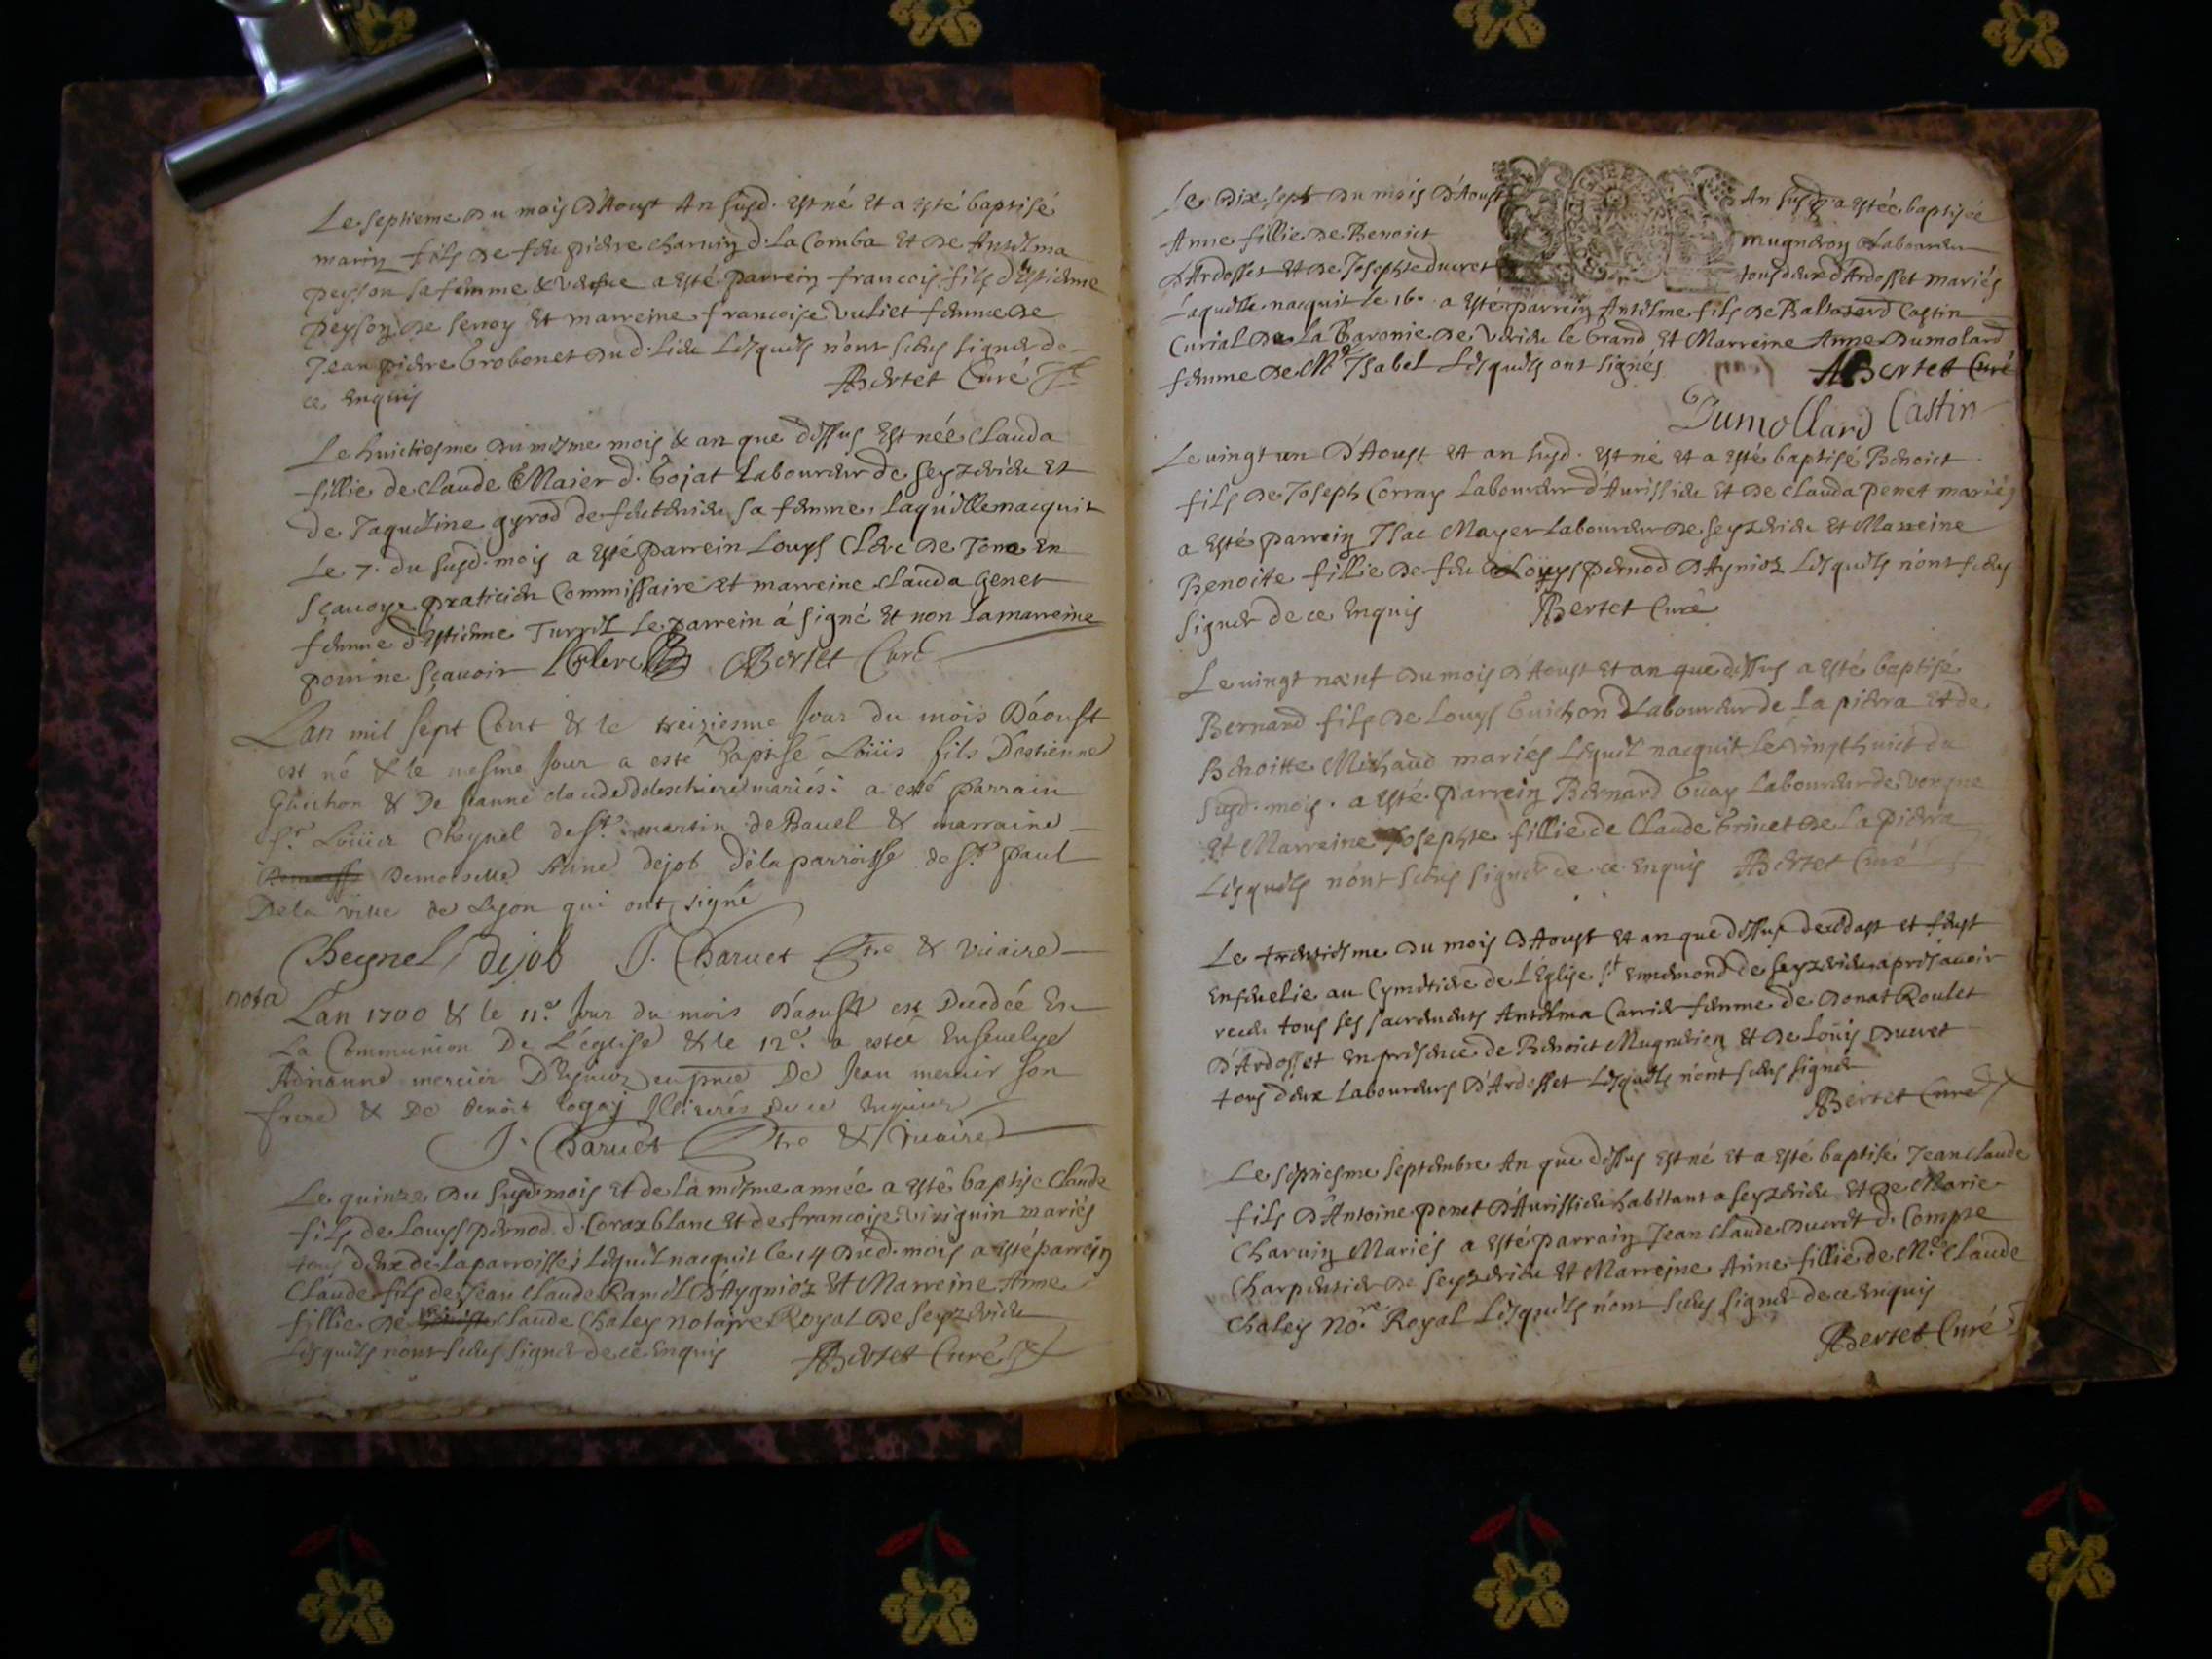 Le septieme du mois d'Aoust An susd. est né et a esté baptisé
marin fils de feu pierre charvin d. La Comba et de Antelma
peysson sa femme & vefve a esté parrein francois fils d'Estienne
peyson de serroy et marreine francoise vuliet femme de
Jean pierre Grobonet dud. lieu Lesquels n'ont sceus signer de
ce enquis
ABertet Curé
Le huictiesme du mesme mois & an que dessus est née Clauda
fillie de Claude Maier d. Gojat Laboureur de Seyzerieu et
de Jaqueline gyrod de sa femme, laquelle nacquit
Le 7. du susd. mois a esté parrein Louys Clerc de Jene en
sçavoye praticien Commissaire et marreine Clauda Genet
femme d'Estienne Turrel Le parrein à signé et non la marreine
pour ne sçavoir Leclerc ABertet Curé
Lan mil sept Cent & le treiziesme Jour du mois D'aoust
est né & le mesme Jour a esté Baptisé Loüis fils D'estienne
Guichon & De Jeanne claude mariés: a esté parrain
Sr. Loüis Cheynel de St. martin de Bavel & marraine
Demoiselle Anne dejob de la parroisse de St. paul
De la ville de Lyon qui ont signé
Cheynel dejob J. Charvet Ptre & vicaire
nota
Lan 1700 & le 11e. Jour du mois D'aoust est Decedée En
La Communion De L'église & le 12e. a estée Ensevelye
Adrianne mercier en pnce De Jean mercier son
frere & De benoit Illiterés de ce Enquis
J. Charvet Ptre & Vicaire
Le quinze du susd. mois et de la mesme année a esté baptisé Claude
fils de Louys pernod d. Corax blanc et de francoise viriguin mariés
tous deux de la parroisse, Lequel nacquit le 14 dud. mois a esté parrein
Claude fils de Jean Claude Ramel d'Aygnioz et Marreine Anne
fillie de Claude Chaley notayre Royal de Seyzerieu
Lesquels n'ont sceus signer de ce enquis ABertet Curé
Le dix sept du mois d'Aoust An susd. a estée baptisée
Anne fillie de Benoict mugneron Laboureur
d'Ardosset et de Josephte ducret tous deux d'Ardosset mariés
Laquelle nacquit le 16. a esté parrein Antelme fils de Baltasard Castin
Curial de La Baronie de Verieu le Grand et Marreine Anne Dumolard
femme de Mr. Isabel Lesquels ont signés ABertet Curé
Dumollard Castin
Le vingt un d'Aoust et an susd. est né et a esté baptisé Benoict
fils de Joseph Corray Laboureur d'Aurissieu et de Clauda penet mariés
a esté parrein Isac Mayer Laboureur de Seyzerieu et Marreine
Benoitte fillie de feu Louys pernod d'Aynioz Lesquels n'ont sceus
signer de ce enquis ABertet Curé
Le vingt neuf du mois d'Aoust et an que dessus a esté baptisé
Bernard fils de Louys Guichon Laboureur de La pierra et de
Benoitte Michaud mariés Lequel nacquit Le vingt huict du
susd. mois. a esté parrein Bernard Guay Laboureur de vongne
et Marreine Josephte fillie de Claude Grinet de La pierra
Lesquels n'ont sceus signer de ce enquis ABertet Curé
Le trentiesme du mois d'Aoust et an que dessus deceda et feust
ensevelie au Cymetiere de L'Eglise St ennemond de Seyzerieu apres avoir
receu tous ses sacrements Antelma Carrier femme de Donat Roulet
d'Ardosset en presence de Benoict Mugnerion et de Loüis Ducret
tous deux Laboureurs d'Ardosset Lesquels n'ont sceus signer
ABertet Curé
Le sepriesme Septembre An que dessus est né et a esté baptisé Jean Claude
fils d'Antoine penet d'Aurissieu habitant a Seyzerieu et de Marie
Charvin Mariés a esté parrain Jean Claude Ducret d. Compte
Charpentier de Seyzerieu et Marreine Anne fillie de Me. Claude
Chaley Nore. Royal Lesquels n'ont sceus signer de ce enquis
ABertet Curé